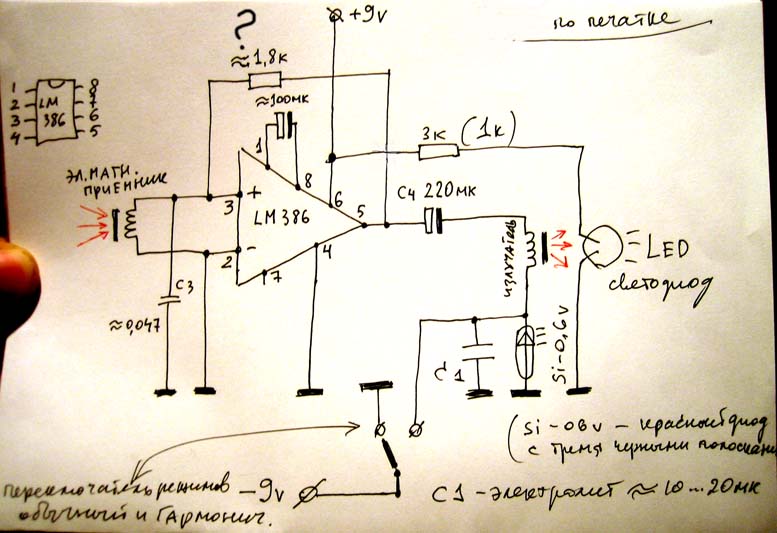 по печатке
?
+9v
≈1,8к
≈100мк
1 8
2 LM 7
3 386 6
4 5
3к (1к)
ЭЛ.МАГН.
ПРИЕМНИК
1
8
6
C4 220мк
3 +
LM 386
5
2 -
7
4
излучатель
LED
светодиод
C3
≈0,047
C1
Si-0,6v
(Si-06v - красный диод
с тремя чёрными полосками
переключатель режимов
обычный и гармонич.
-9v
C1 - электролит ≈ 10...20мк